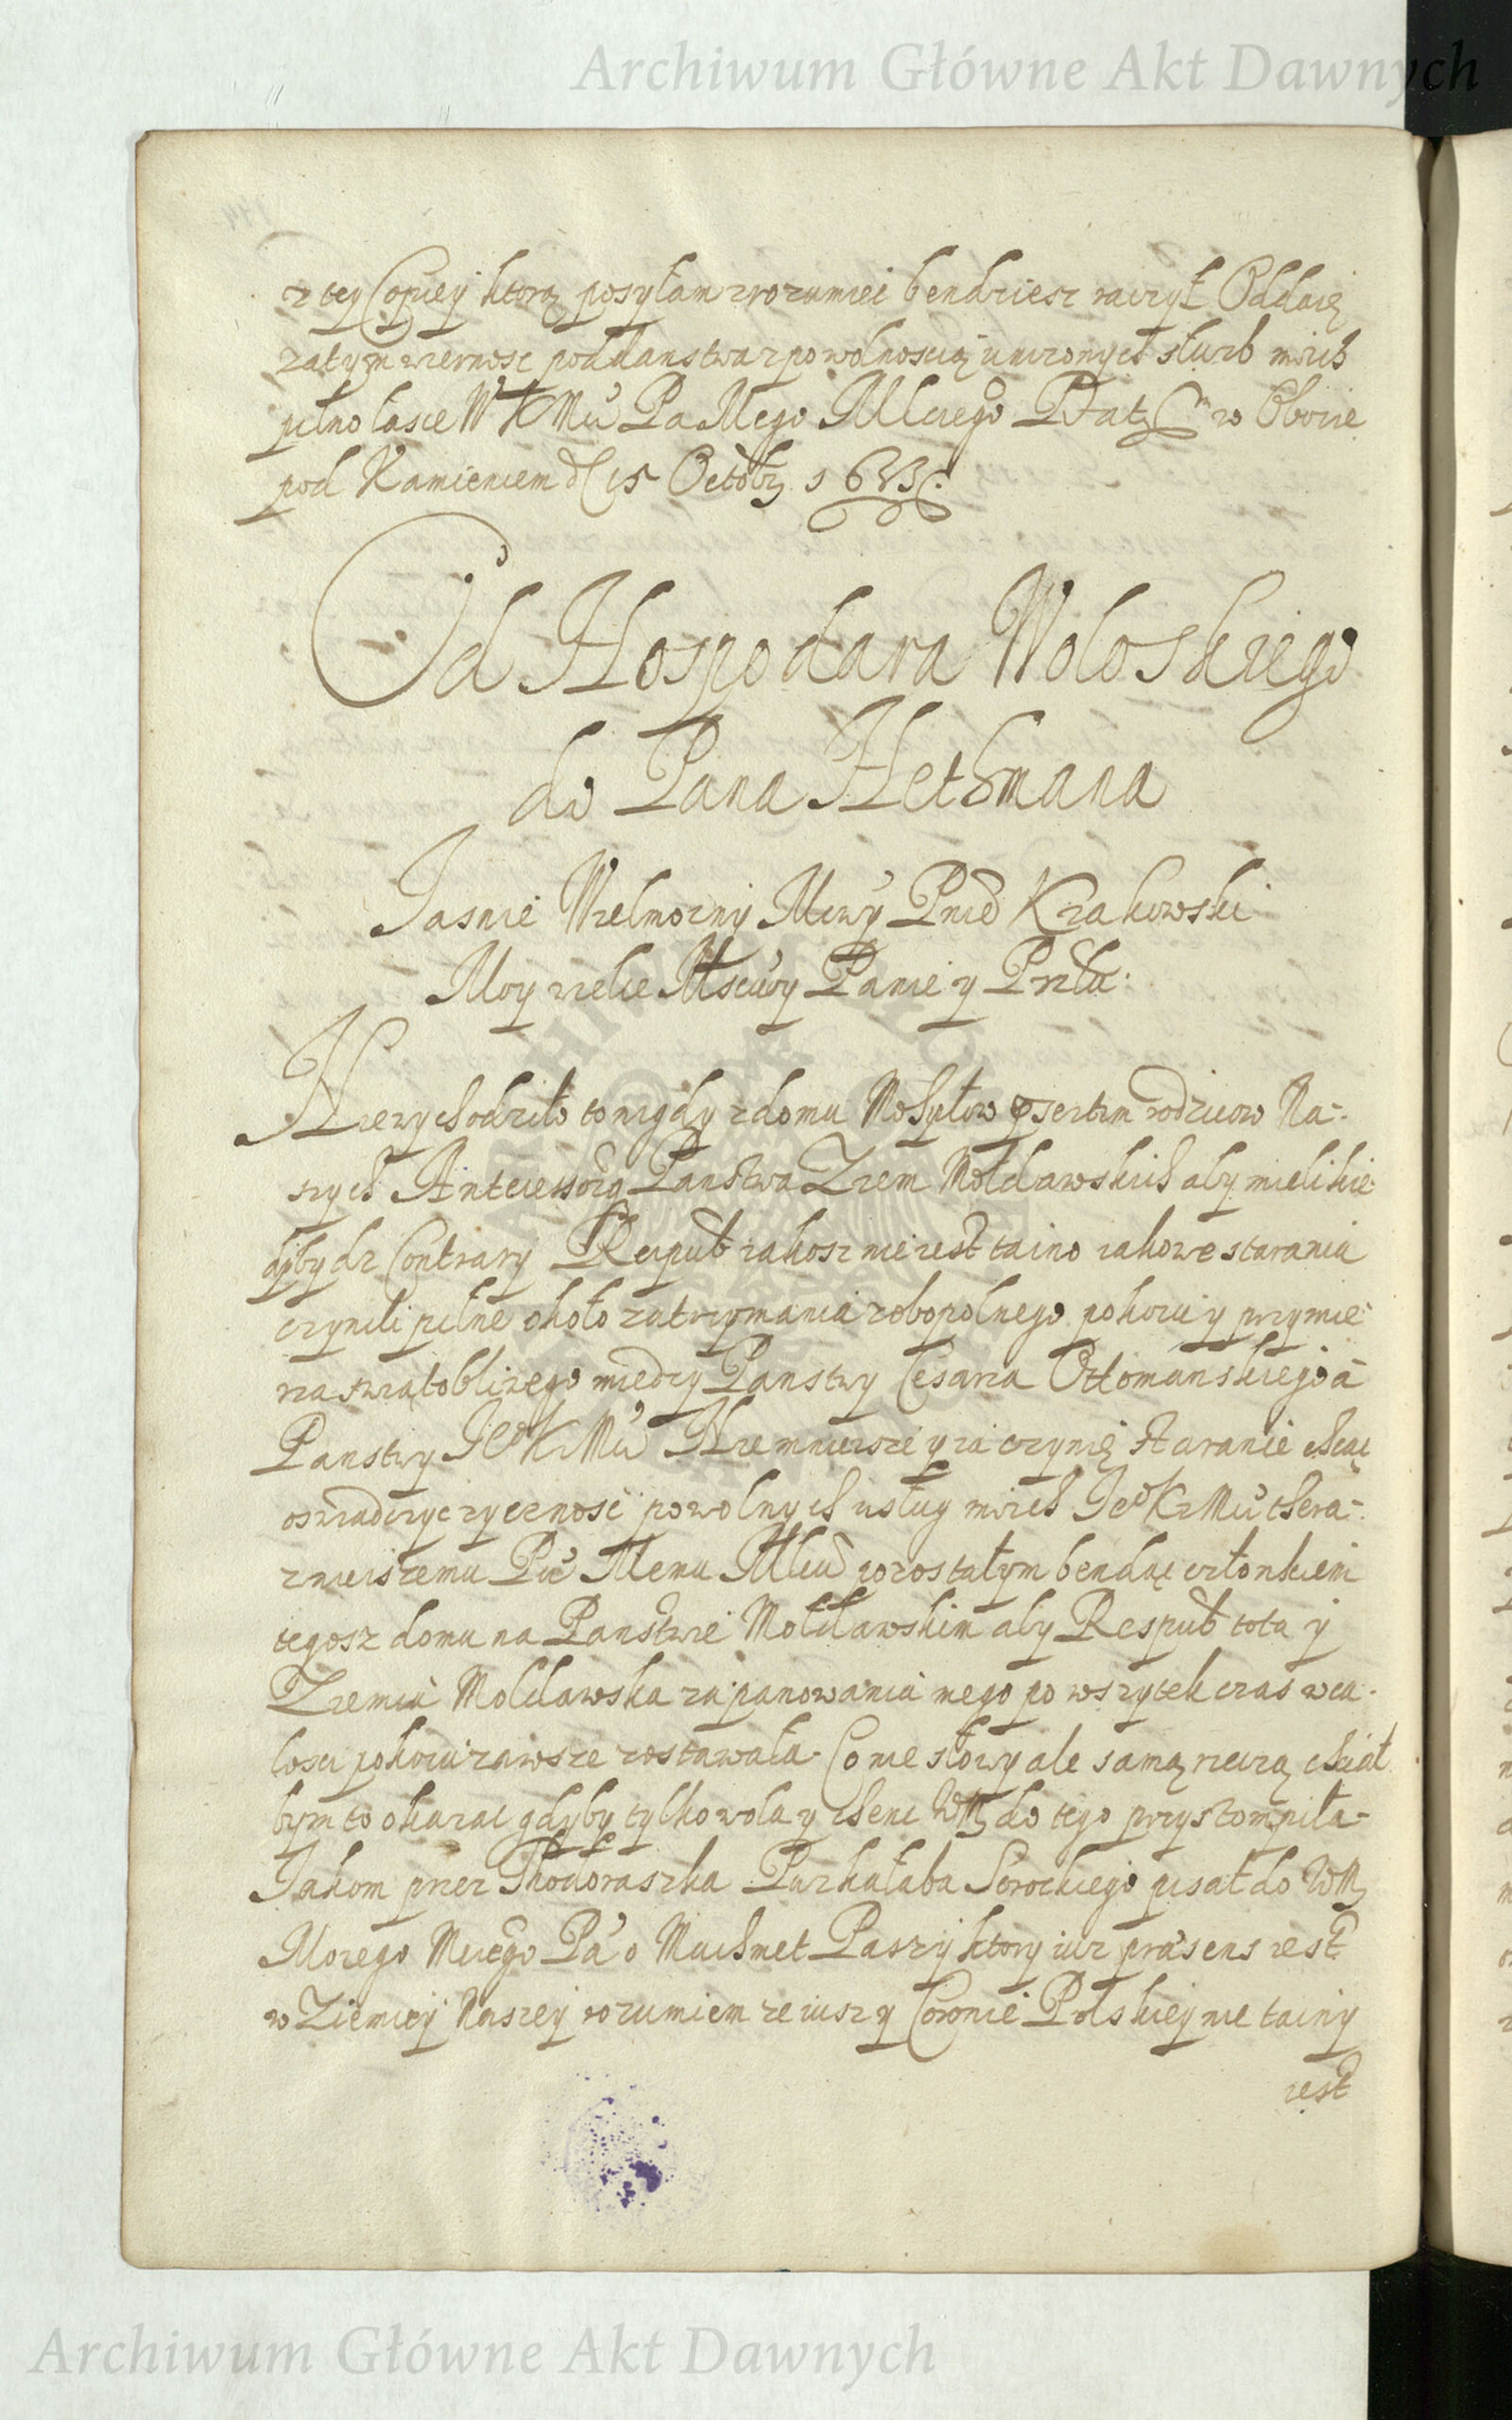 Archiwum Główne Akt Dawnych
z tey Copiey ktorą posyłam zrozumieć bendziesz raczył Oddaię
zatym wiernosc poddanstwa z powolnoscią unizonych sluzb moich
pilno łasce W K Mci Pa Mego Młciego Dat w Obozie
pod Kamieniem d 15 Octobr 1633.
Od Hospodara Woloskiego
do Pana Hethmana
Jasnie Wielmozny Mciwy Panie Krakowski
Moy wielce Msciwy Panie y Przlu:
Niewychodziło to nigdy z domu Mohyłow rodzicow Na-
szych Antecessorow Panstwa Ziem Mołdawskich aby mieli kie-
dy bydz Contrary Reipub iakosz nie iest taino iakowe starania
czynili pilne około zatrzymania zobopolnego pokoiu y przymie-
rza swiątobliwego miedzy Panstwy Cesarza Ottomanskiego a
Panstwy Je K Mci Niemnieisze y ia czynię staranie chcąc
oswiadczyc zycznosć powolnych usług moich Je K Mci thera-
znieiszemu Panu Memu Młciu pozostałym bendąc członkiem
tegosz domu na Panstwie Mołdawskim aby Respub tota y
Ziemia Moldawska za panowania mego po wszytek czas w ca-
losci pokoiu zawsze zostawała. Co nie słowy ale samą rzeczą chciał
bym to okazac gdyby tylko wola y chenc WM do tego przystompiła-
Jakom przez Thodoraszka Parkałaba Sorockiego pisał do WM
Moiego Mciego Pa o Machmet Paszy ktory iuz præsens iest
w Ziemiey Naszey rozumiem ze iusz y Coronie Polskiey nie tainy
iest
Archiwum Główne Akt Dawnych